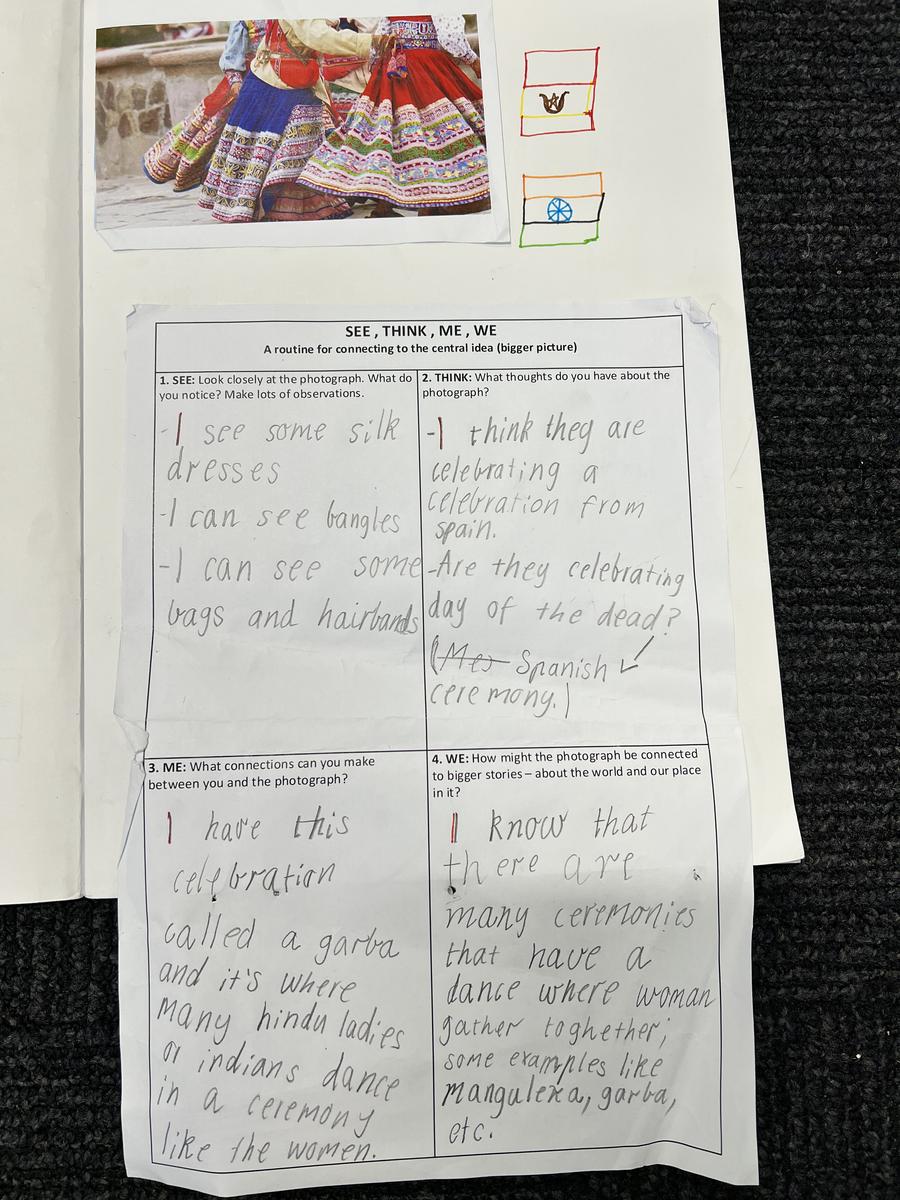 SEE , THINK , ME , WE
A routine for connecting to the central idea (bigger picture)
1. SEE: Look closely at the photograph. What do
you notice? Make lots of observations.
-I see some silk
dresses
-I can see bangles
-I can see some
bags and hairbands
2. THINK: What thoughts do you have about the
photograph?
-I think they are
celebrating a
celebration from
spain.
-Are they celebrating
day of the dead?
(Me) Spanish
ceremony.)
3. ME: What connections can you make
between you and the photograph?
I have this
celebration
called a garba
and it's where
many hindu ladies
or indians dance
in a ceremony
like the women.
4. WE: How might the photograph be connected
to bigger stories – about the world and our place
in it?
I know that
there are
many ceremonies
that have a
dance where woman
gather toghether;
some examples like
mangulexa, garba,
etc.